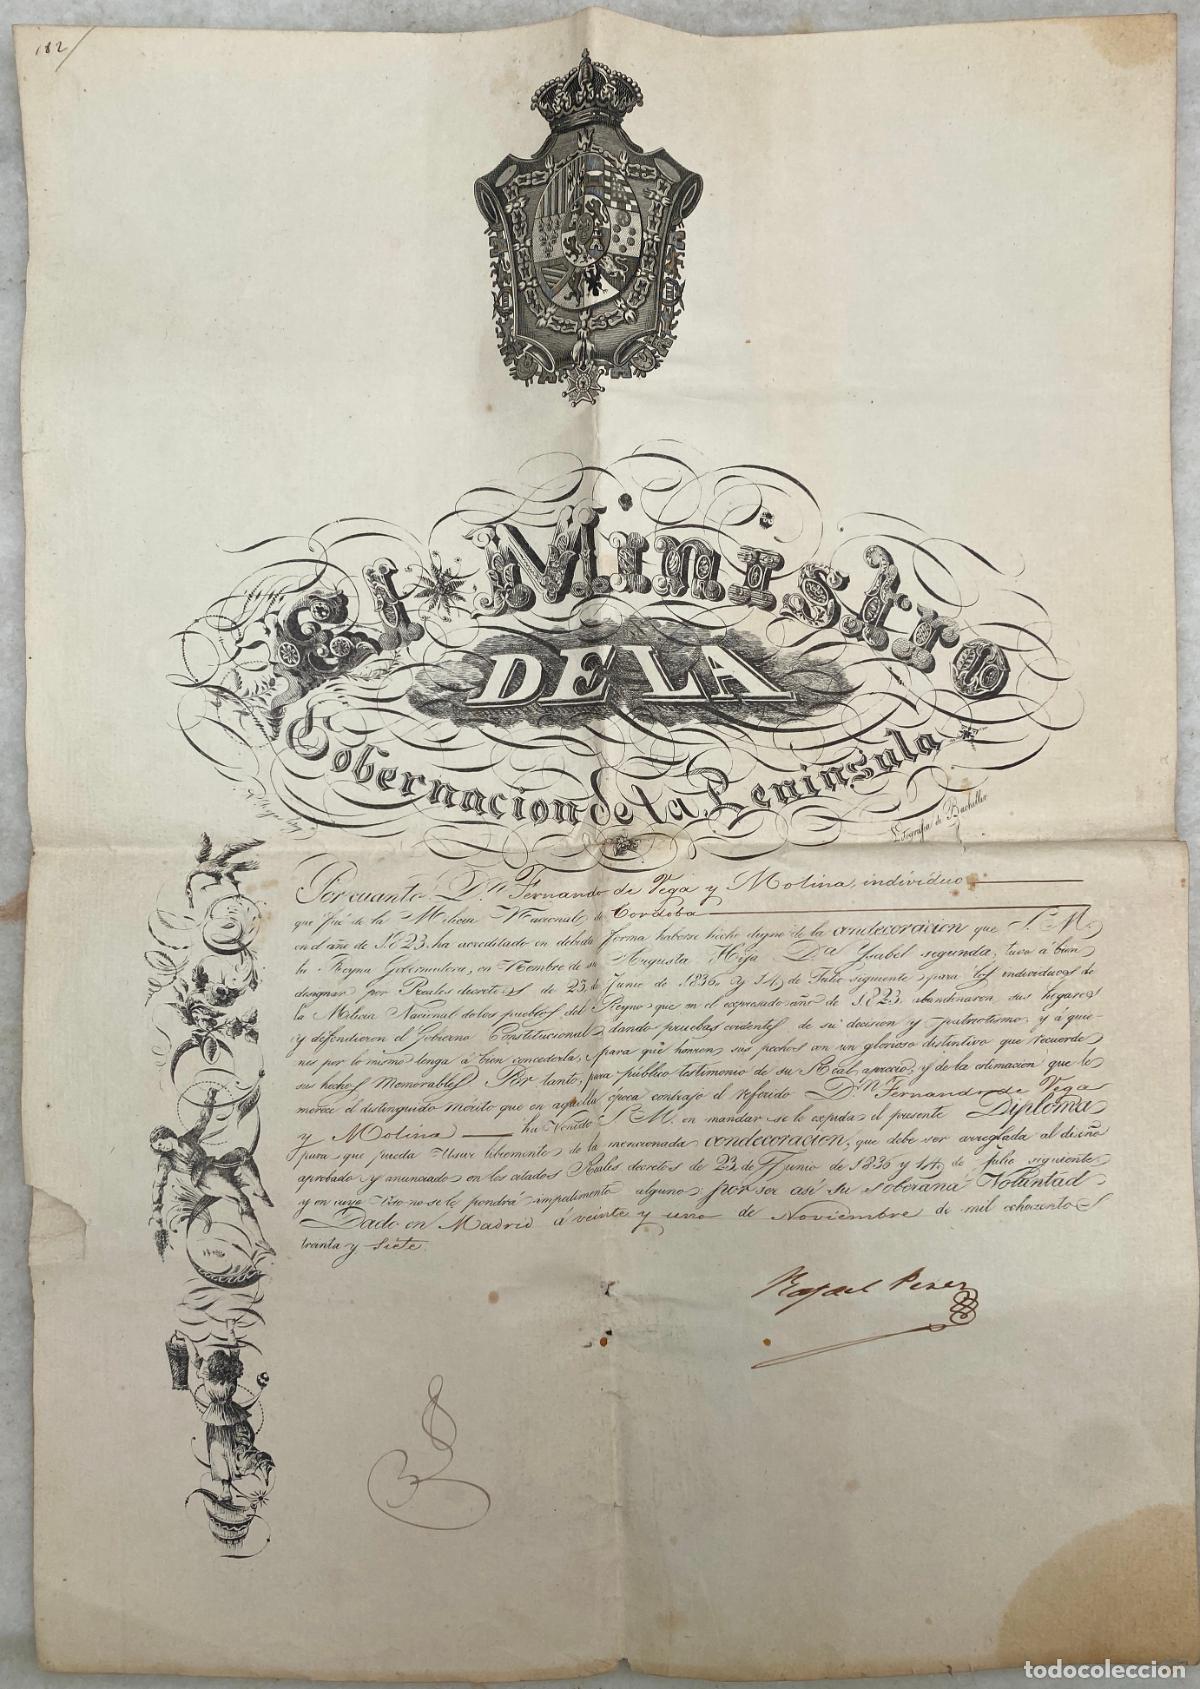 182
El Ministro
DE LA
Gobernacion de la Peninsula
Litografia de Bachiller
Por cuanto D.n Fernando de Vega y Molina, individuo
que fué de la Milicia Nacional de Cordoba
en el año de 1823, ha acreditado en debida forma haberse hecho digno de la condecoracion que S. M.
la Reyna Gobernadora, en Nombre de su Augusta Hija D.a Ysabel segunda, tuvo á bien
designar por Reales decretos de 23 de Junio de 1836, y 14 de Julio siguiente para los individuos de
la Milicia Nacional de los pueblos del Reyno que en el expresado año de 1823 abandonaron sus hogares
y defendieron el Gobierno Constitucional dando pruebas evidentes de su decision y patriotismo, y á quie-
nes por lo mismo tenga á bien concederla, para que honren sus pechos con un glorioso distintivo que recuerde
sus hechos Memorables. Por tanto, para público testimonio de su Real aprecio, y de la estimacion que le
merece el distinguido mérito que en aquella época contrajo el referido D.n Fernando de Vega
y Molina ha Venido S. M. en mandar se le expida el presente Diploma
para que pueda Usar libremente de la mencionada condecoracion, que debe ser arreglada al diseño
aprobado y anunciado en los citados Reales decretos de 23 de Junio de 1836 y 14 de Julio siguiente
y en cuyo Uso no se le pondrá impedimento alguno; por ser así su Soberana Voluntad
Dado en Madrid á veinte y uno de Noviembre de mil ochocientos
treinta y siete.
Rafael Perez
todocoleccion